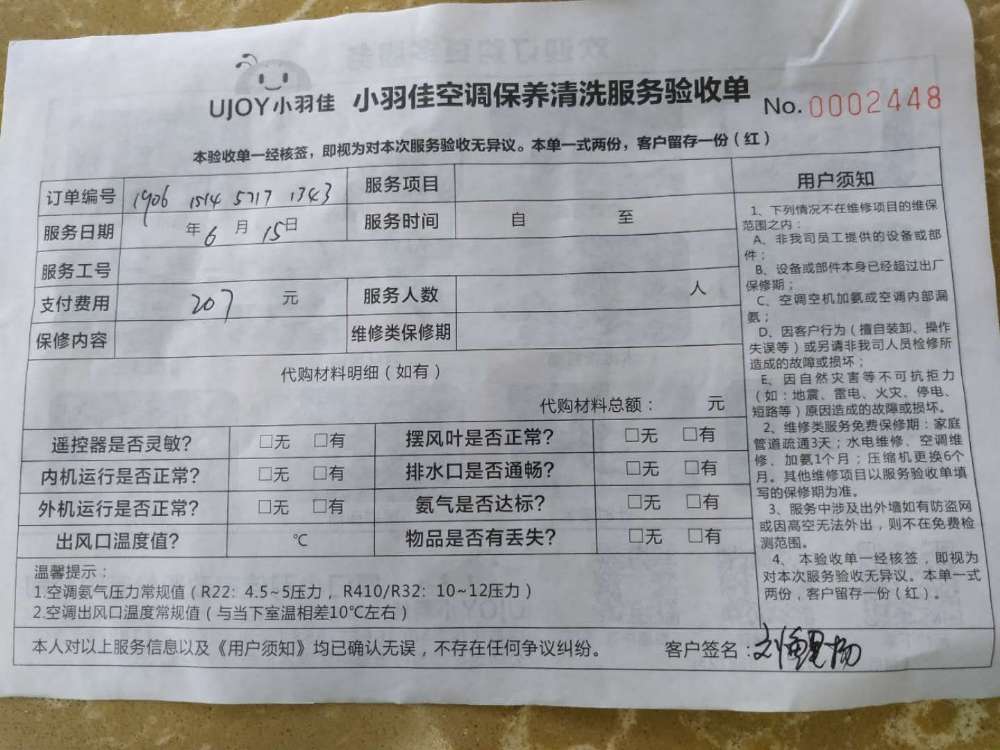 UJOY小羽佳 小羽佳空调保养清洗服务验收单 No.0002448
本验收单一经核签，即视为对本次服务验收无异议。本单一式两份，客户留存一份（红）
订单编号 1906 1514 5717 1343 服务项目
服务日期 年6月15日 服务时间 自 至
服务工号
支付费用 207 元 服务人数 人
保修内容 维修类保修期
代购材料明细（如有）
代购材料总额： 元
遥控器是否灵敏? □无 □有 摆风叶是否正常? □无 □有
内机运行是否正常? □无 □有 排水口是否通畅? □无 □有
外机运行是否正常? □无 □有 氨气是否达标? □无 □有
出风口温度值? ℃ 物品是否有丢失? □无 □有
温馨提示：
1.空调氨气压力常规值（R22：4.5~5压力，R410/R32：10~12压力）
2.空调出风口温度常规值（与当下室温相差10℃左右）
本人对以上服务信息以及《用户须知》均已确认无误，不存在任何争议纠纷。 客户签名：
用户须知
1、下列情况不在维修项目的维保
范围之内：
A、非我司员工提供的设备或部
件；
B、设备或部件本身已经超过出厂
保修期；
C、空调空机加氨或空调内部漏
氨；
D、因客户行为（擅自装卸、操作
失误等）或另请非我司人员检修所
造成的故障或损坏；
E、因自然灾害等不可抗拒力
（如：地震、雷电、火灾、停电、
短路等）原因造成的故障或损坏。
2、维修类服务免费保修期：家庭
管道疏通3天；水电维修、空调维
修、加氨1个月；压缩机更换6个
月。其他维修项目以服务验收单填
写的保修期为准。
3、服务中涉及出外墙如有防盗网
或因高空无法外出，则不在免费检
测范围。
4、本验收单一经核签，即视为
对本次服务验收无异议。本单一式
两份，客户留存一份（红）。